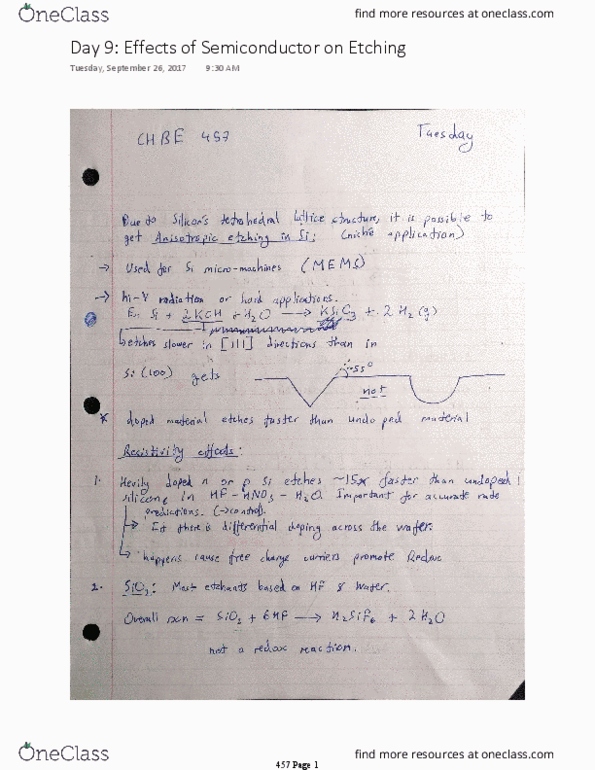 OneClass
find more resources at oneclass.com
Day 9: Effects of Semiconductor on Etching
Tuesday, September 26, 2017 9:30 AM
CHBE 457
Tuesday
Due to Silicon's tetrahedral lattice structure, it is possible to
get Anisotropic etching in Si; (niche application)
→ Used for Si micro-machines (MEMS)
→ hi-V radiation or hard applications.
Ex: Si + 2KOH + H2O → + 2H2(g)
etches slower in [111] directions than in
Si (100) gets
~55°
not
* doped material etches faster than undoped material
Resistivity effects:
1. Heavily doped n or p Si etches ~15x faster than undoped
silicone in HF-HNO3-H2O. Important for accurate rate
predications. (→control).
→ If there is differential doping across the wafer.
→ happens cause free charge carriers promote Redox
2. SiO2: Most etchants based on HF & Water.
Overall rxn = SiO2 + 6HF → H2SiF6 + 2H2O
not a redox reaction.
OneClass
457 Page 1
find more resources at oneclass.com